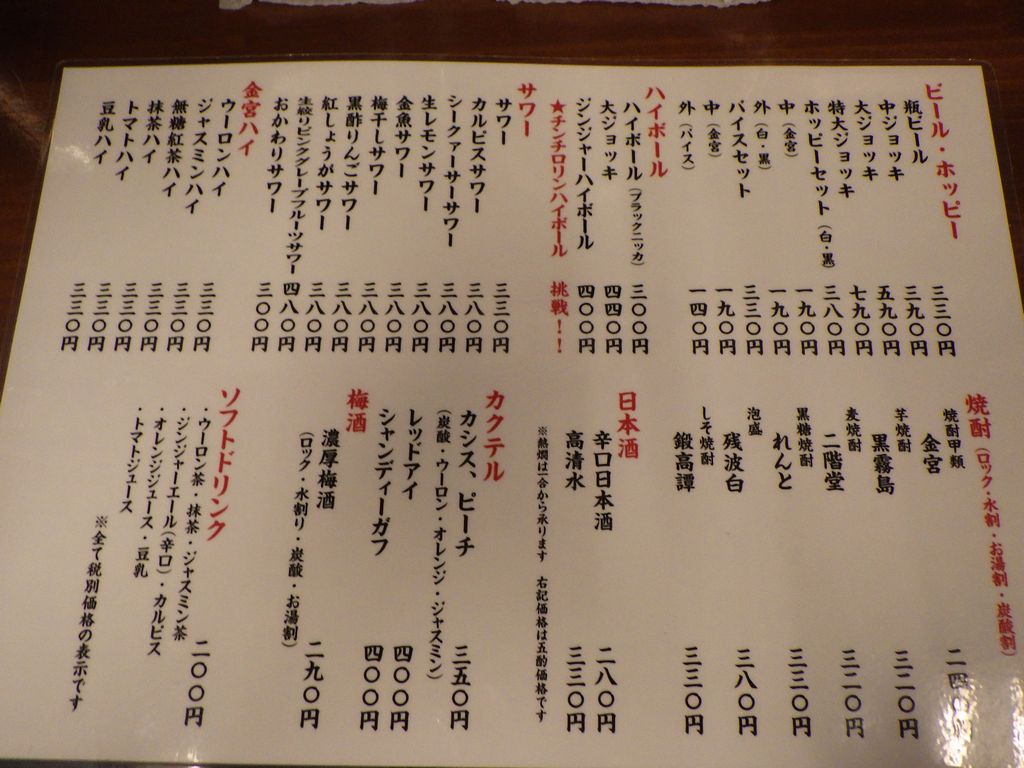 ビール・ホッピー
瓶ビール 三三〇円
中ジョッキ 三九〇円
大ジョッキ 五九〇円
特大ジョッキ 七九〇円
ホッピーセット(白・黒) 三八〇円
中(金宮) 一九〇円
外(白・黒) 一九〇円
バイスセット 三三〇円
中(金宮) 一九〇円
外(バイス) 一四〇円
ハイボール
ハイボール(ブラックニッカ) 三〇〇円
大ジョッキ 四四〇円
ジンジャーハイボール 四〇〇円
★チンチロリンハイボール 挑戦!!
サワー
サワー 三三〇円
カルピスサワー 三八〇円
シークァーサーサワー 三八〇円
生レモンサワー 三八〇円
金魚サワー 三八〇円
梅干しサワー 三八〇円
黒酢りんごサワー 三八〇円
紅しょうがサワー 三八〇円
生絞りピンクグレープフルーツサワー 四八〇円
おかわりサワー 三〇〇円
金宮ハイ
ウーロンハイ 三三〇円
ジャスミンハイ 三三〇円
無糖紅茶ハイ 三三〇円
抹茶ハイ 三三〇円
トマトハイ 三三〇円
豆乳ハイ 三三〇円
焼酎(ロック・水割・お湯割・炭酸割)
焼酎甲類
金宮 二四〇円
芋焼酎
黒霧島 三二〇円
麦焼酎
二階堂 三二〇円
黒糖焼酎
れんと 三三〇円
泡盛
残波白 三八〇円
しそ焼酎
鍛高譚 三三〇円
日本酒
辛口日本酒 二八〇円
高清水 三三〇円
※熱燗は一合から承ります 右記価格は五酌価格です
カクテル
カシス、ピーチ 三五〇円
(炭酸・ウーロン・オレンジ・ジャスミン)
レッドアイ 四〇〇円
シャンディーガフ 四〇〇円
梅酒
濃厚梅酒 二九〇円
(ロック・水割り・炭酸・お湯割)
ソフトドリンク 二〇〇円
・ウーロン茶・抹茶・ジャスミン茶
・ジンジャーエール(辛口)・カルピス
・オレンジジュース・豆乳
・トマトジュース
※全て税別価格の表示です